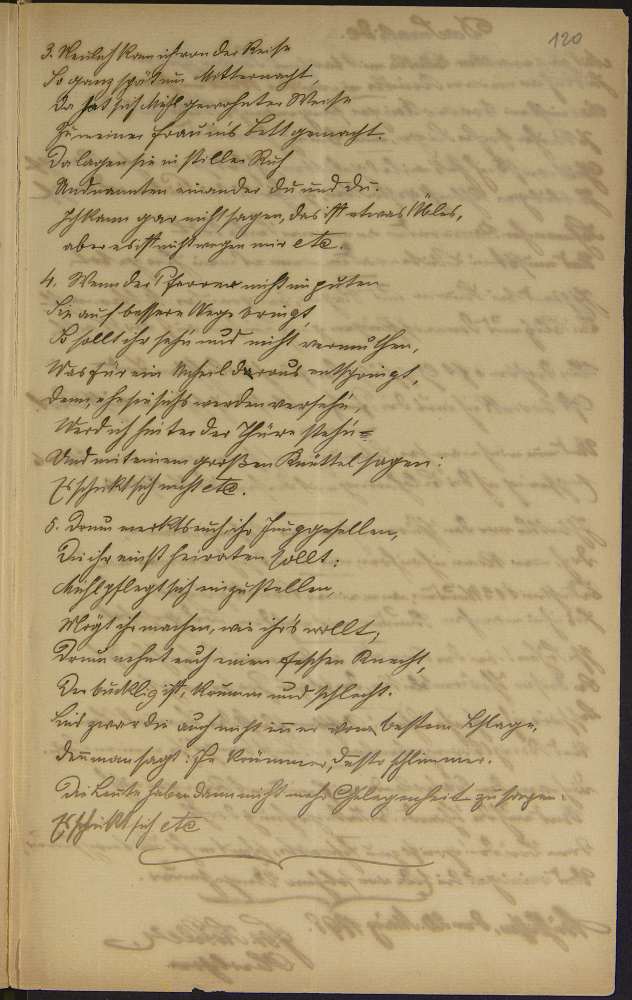 120
3. Neulich kam ich von der Reise
So ganz spät um Mitternacht,
Da hat sich Michl gewohnter Weise
Zu meiner Frau ins Bett gemacht.
Da lagen sie in stiller Ruh
Und nannten einander du und du.
Ich kann gar nicht sagen, das ist etwas Übles,
aber es ist nicht wegen mir etc.
4. Wenn der Pfarrer nicht im guten
Sie auf bessere Wege bringt,
So sollt ihr sehn und nicht vermuthen,
Was für ein Urtheil daraus entspringt,
Denn, ehe sie sichs werden versehn,
Werd ich hinter der Thüre stehn
Und mit einem großen Knüttel sagen:
Es schickt sich nicht etc.
5. Drum merkts euch, ihr Junggesellen,
Die ihr einst heiraten sollt:
Michl pflegt sich einzustellen,
Mögt ihr machen, wie ihr's wollt,
Drum nehmt euch einen Knecht,
Der bucklig ist, krumm und schlecht.
Sind zwar die auch nicht immer vom besten Schlage,
Denn man sagt: Je krümmer, desto schlimmer.
Die Leute haben dann nicht mehr Gelegenheit zu sagen:
Es schickt sich etc